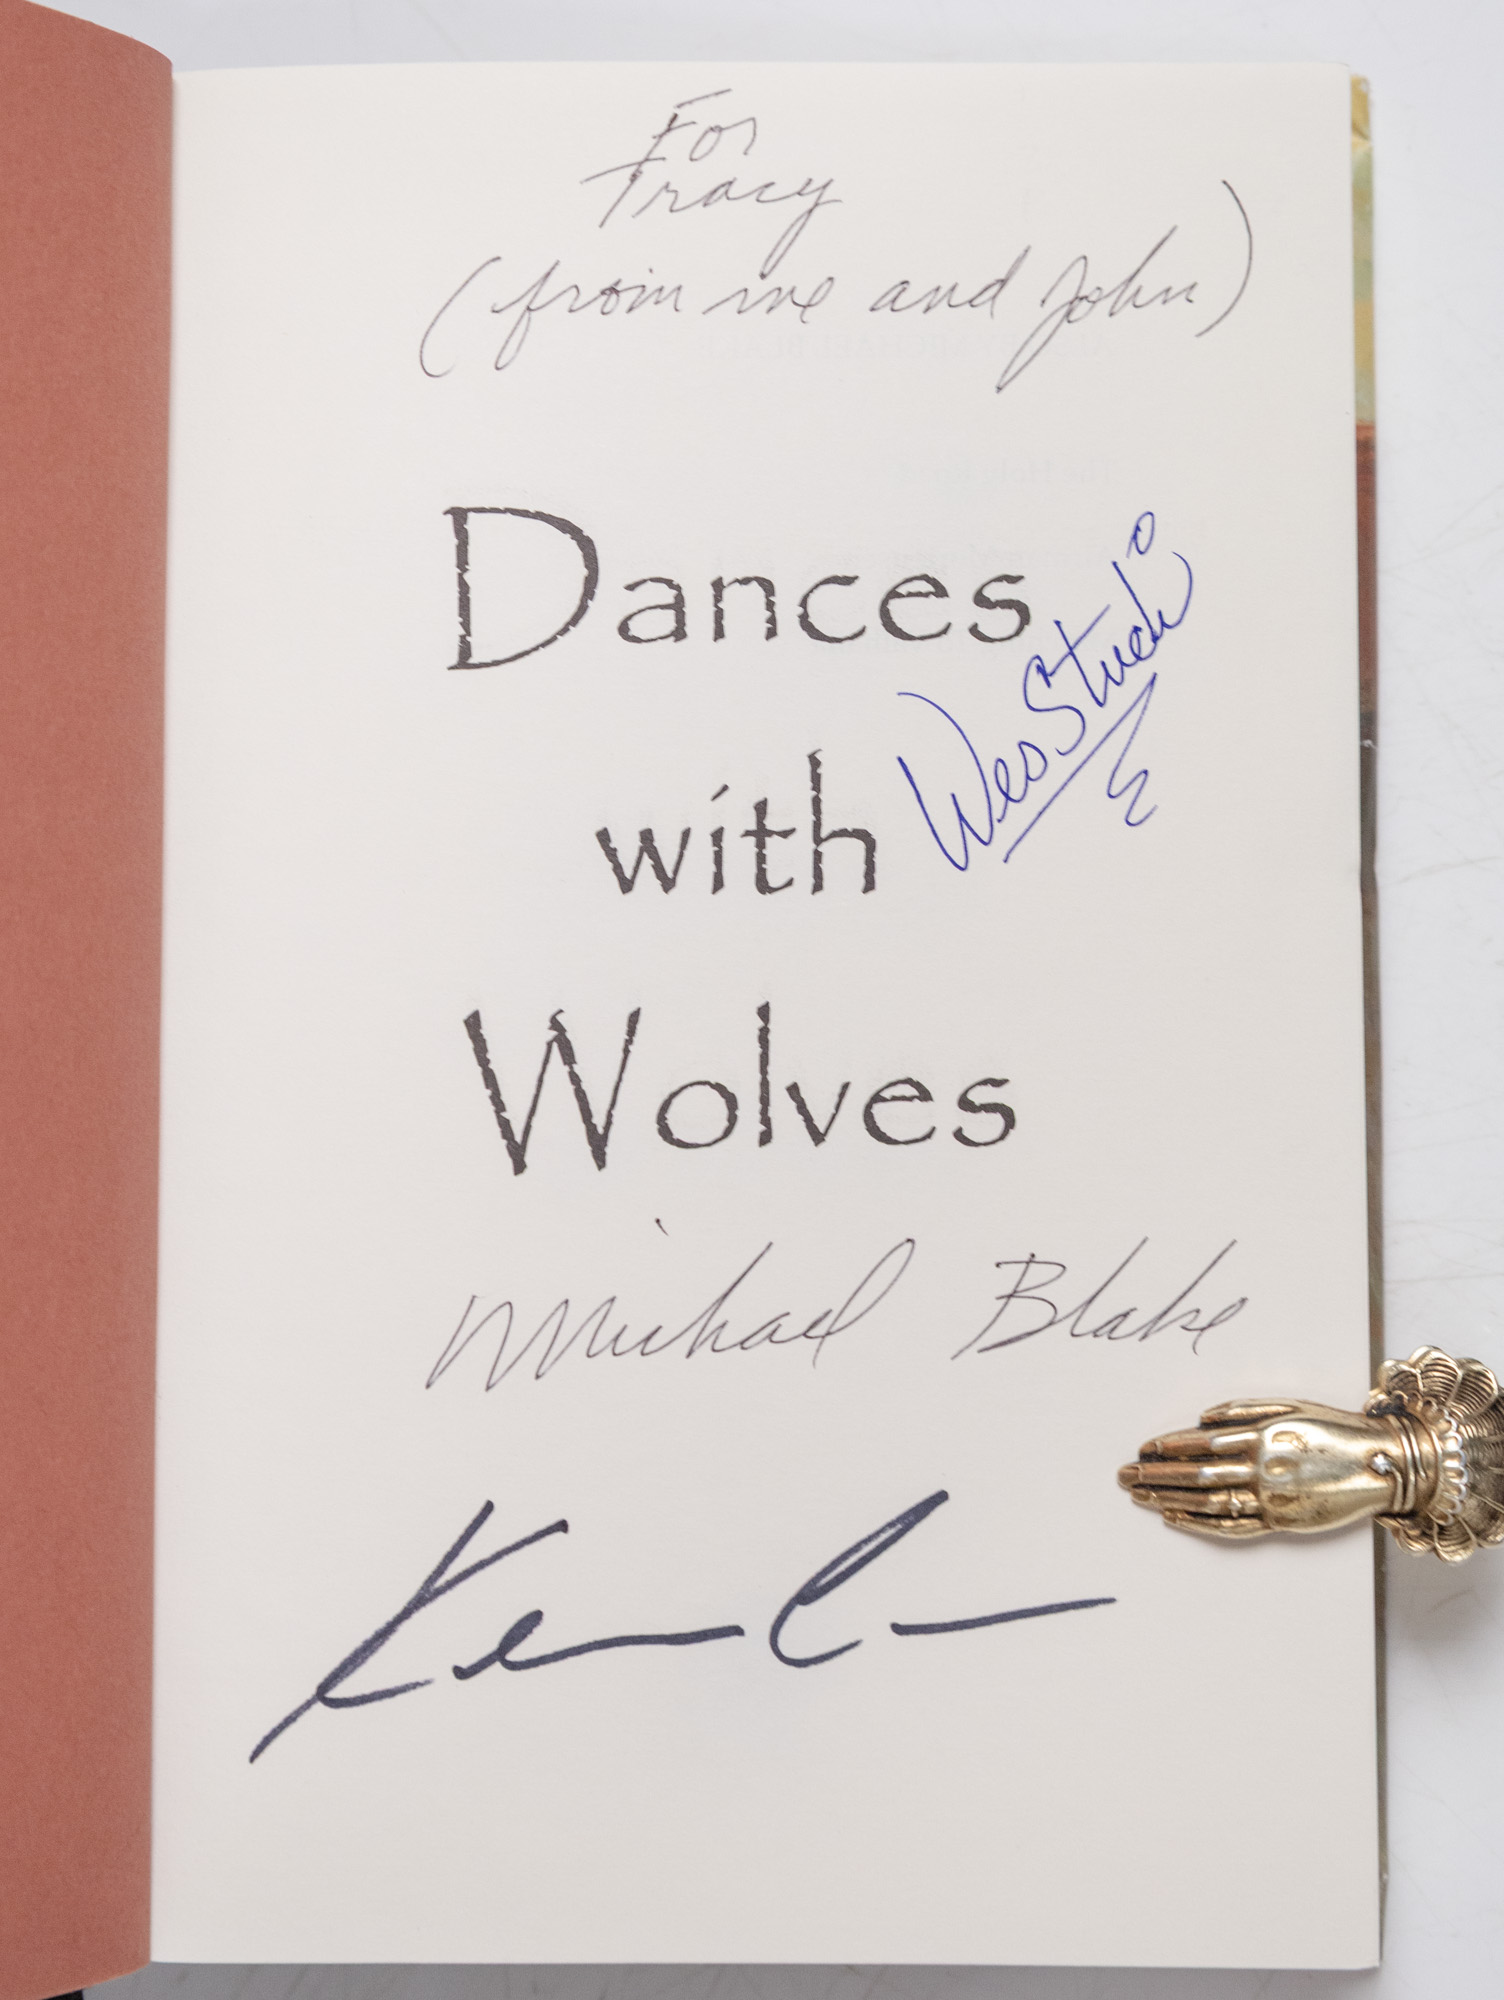 For
Tracy
(from me and John)
Dances
Wes Studi
with
Wolves
Michael Blake